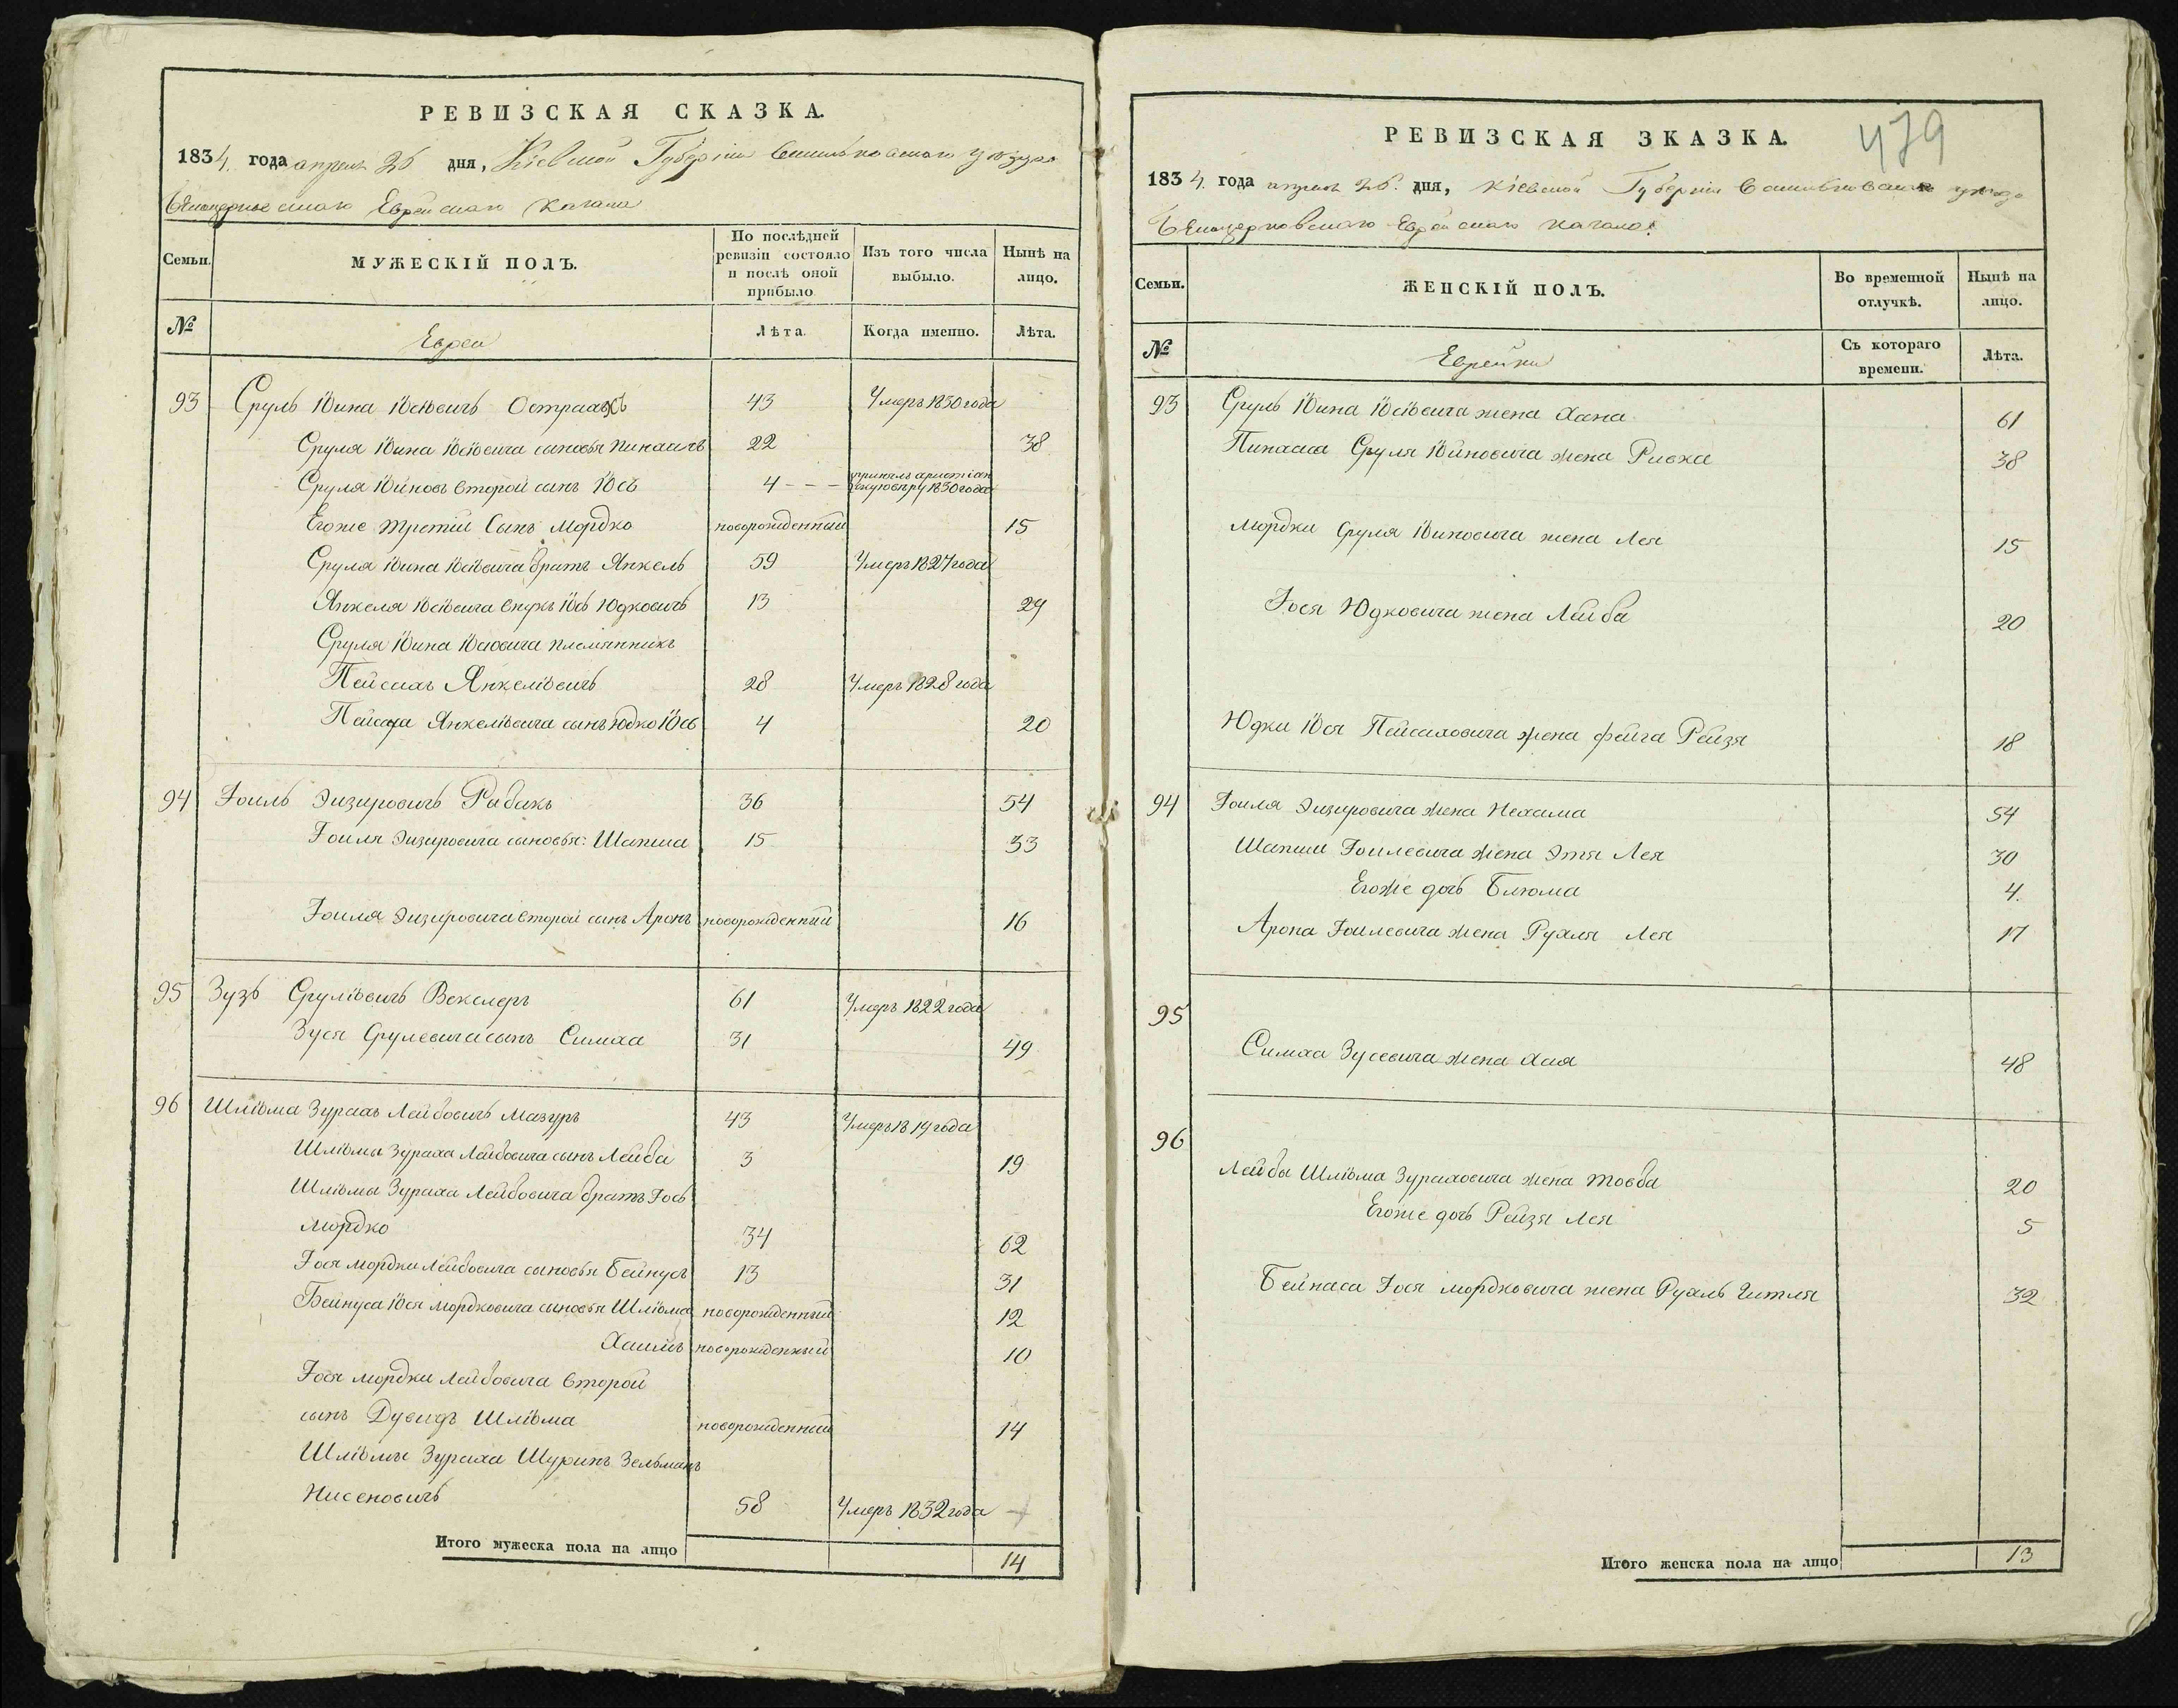 РЕВИЗСКАЯ СКАЗКА.
1834 года апреля 26 дня, Кіевской Губерніи Васильковскаго уѣзда
Бѣлоцерковскаго Еврейскаго Кагала
Семьи. МУЖЕСКІЙ ПОЛЪ. По послѣдней ревизіи состояло и послѣ оной прибыло Изъ того числа выбыло. Нынѣ на лицо.
№ Евреи Лѣта. Когда именно. Лѣта.
93 Сруль Іойна Іосіовичь Острахъ 43 Умеръ 1830 года
Сруля Іойна Іосіовича сыновья Пинхасъ 22 38
Сруля Іойновъ второй сынъ Іось 4 - - - принялъ христіанскую вѣру 1830 года
Егоже третій Сынъ Мордко новорожденный 15
Сруля Іойна Іосіовича братъ Янкель 59 Умеръ 1827 года
Янкеля Іосіовича внукъ Іось Юдковичъ 13 29
Сруля Іойна Іосіовича племянникъ
Пейсахъ Янкеліовичъ 28 Умеръ 1828 года
Пейсаха Янкеліовича сынъ Юдко Іось 4 20
94 Іоиль Эизировичъ Рабакъ 36 54
Іоиля Эизировича сыновья: Шапша 15 33
Іоиля Эизировича второй сынъ Аронъ новорожденный 16
95 Зузь Сруліовичъ Векслеръ 61 Умеръ 1822 года
Зуся Срулевича сынъ Симха 31 49
96 Шліома Зурахъ Лейбовичъ Мазуръ 43 Умеръ 1819 года
Шліомы Зураха Лейбовича сынъ Лейба 3 19
Шліомы Зураха Лейбовича братъ Іось
Мордко 34 62
Іося Мордки Лейбовича сыновья Бейнусъ 13 31
Бейнуса Іося Мордковича сыновья Шліома новорожденный 12
Хаимъ новорожденный 10
Іося Мордки Лейбовича второй
сынъ Дувидъ Шліома новорожденный 14
Шліомы Зураха Шуринъ Зельманъ
Нисеновичъ 58 Умеръ 1832 года
Итого мужеска пола на лицо 14
479
РЕВИЗСКАЯ ЗКАЗКА.
1834 года апреля 26. дня, Кіевской Губерніи Васильковскаго уѣзда
Бѣлоцерковскаго Еврейскаго Кагала:
Семьи. ЖЕНСКІЙ ПОЛЪ. Во временной отлучкѣ. Нынѣ на лицо.
№ Еврейки Съ котораго времени. Лѣта.
93 Сруль Іойна Іосіовича жена Хана 61
Пинхаса Сруля Іойновича жена Ривка 38
Мордки Сруля Іойновича жена Лея 15
Іося Юдковича жена Лейба 20
Юдки Іося Пейсаховича жена Фейга Рейзя 18
94 Іоиля Эизировича жена Нехама 54
Шапши Іоилевича жена Этя Лея 30
Егоже дочь Блюма 4.
Арона Іоилевича жена Рухля Лея 17
95
Симха Зусевича жена Хая 48
96
Лейбы Шліома Зураховича жена Товба 20
Егоже дочь Рейзя Лея 5
Бейнаса Іося Мордковича жена Рухль Гитля 32
Итого женска пола на лицо 13